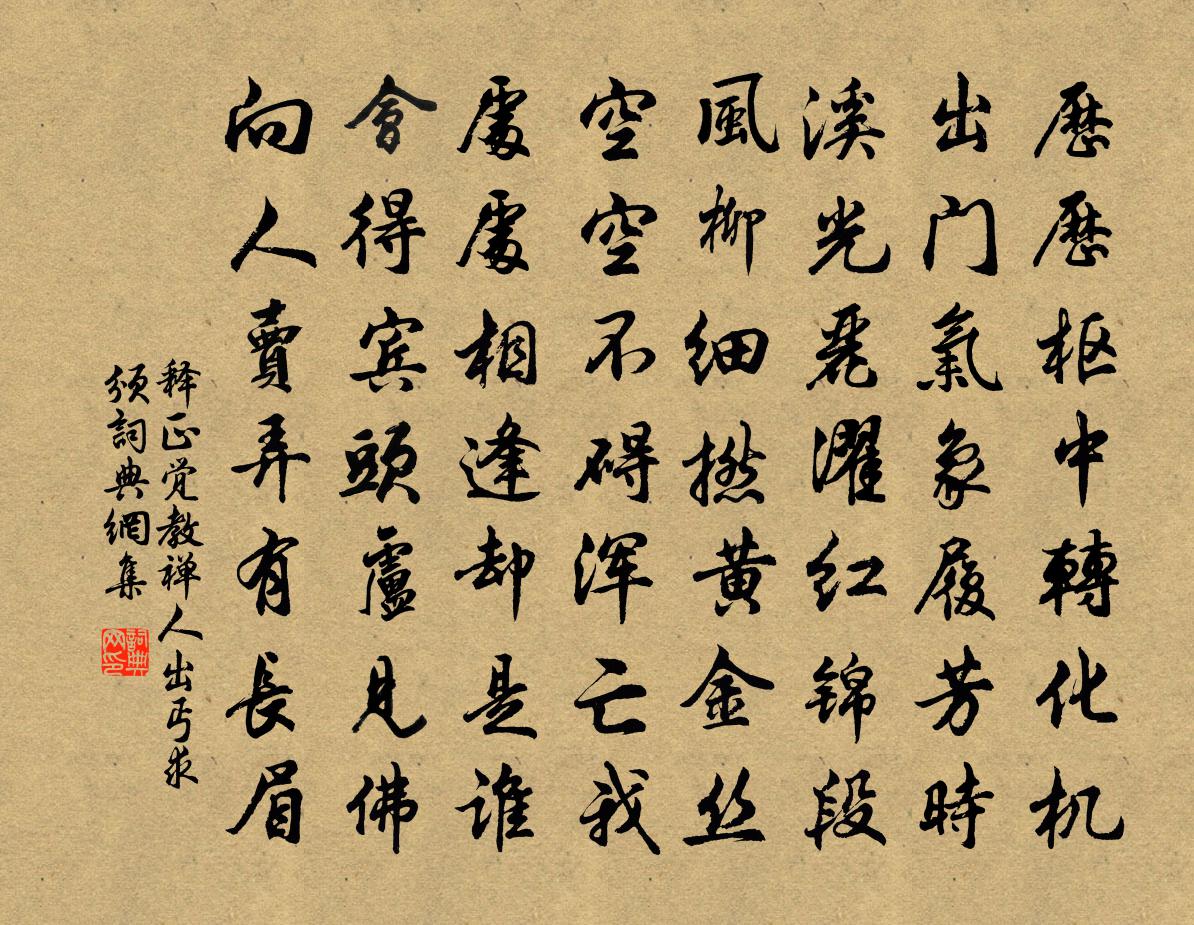 歷歷枢中轉化机
出門氣象履芳時
溪光麗濯红锦段
風柳细撚黄金丝
空空不碍浑亡我
處處相逢却是谁
會得宾頭盧見佛
向人賣弄有長眉
释正觉教禅人出丐求
颂詞典網集
詞典
网印